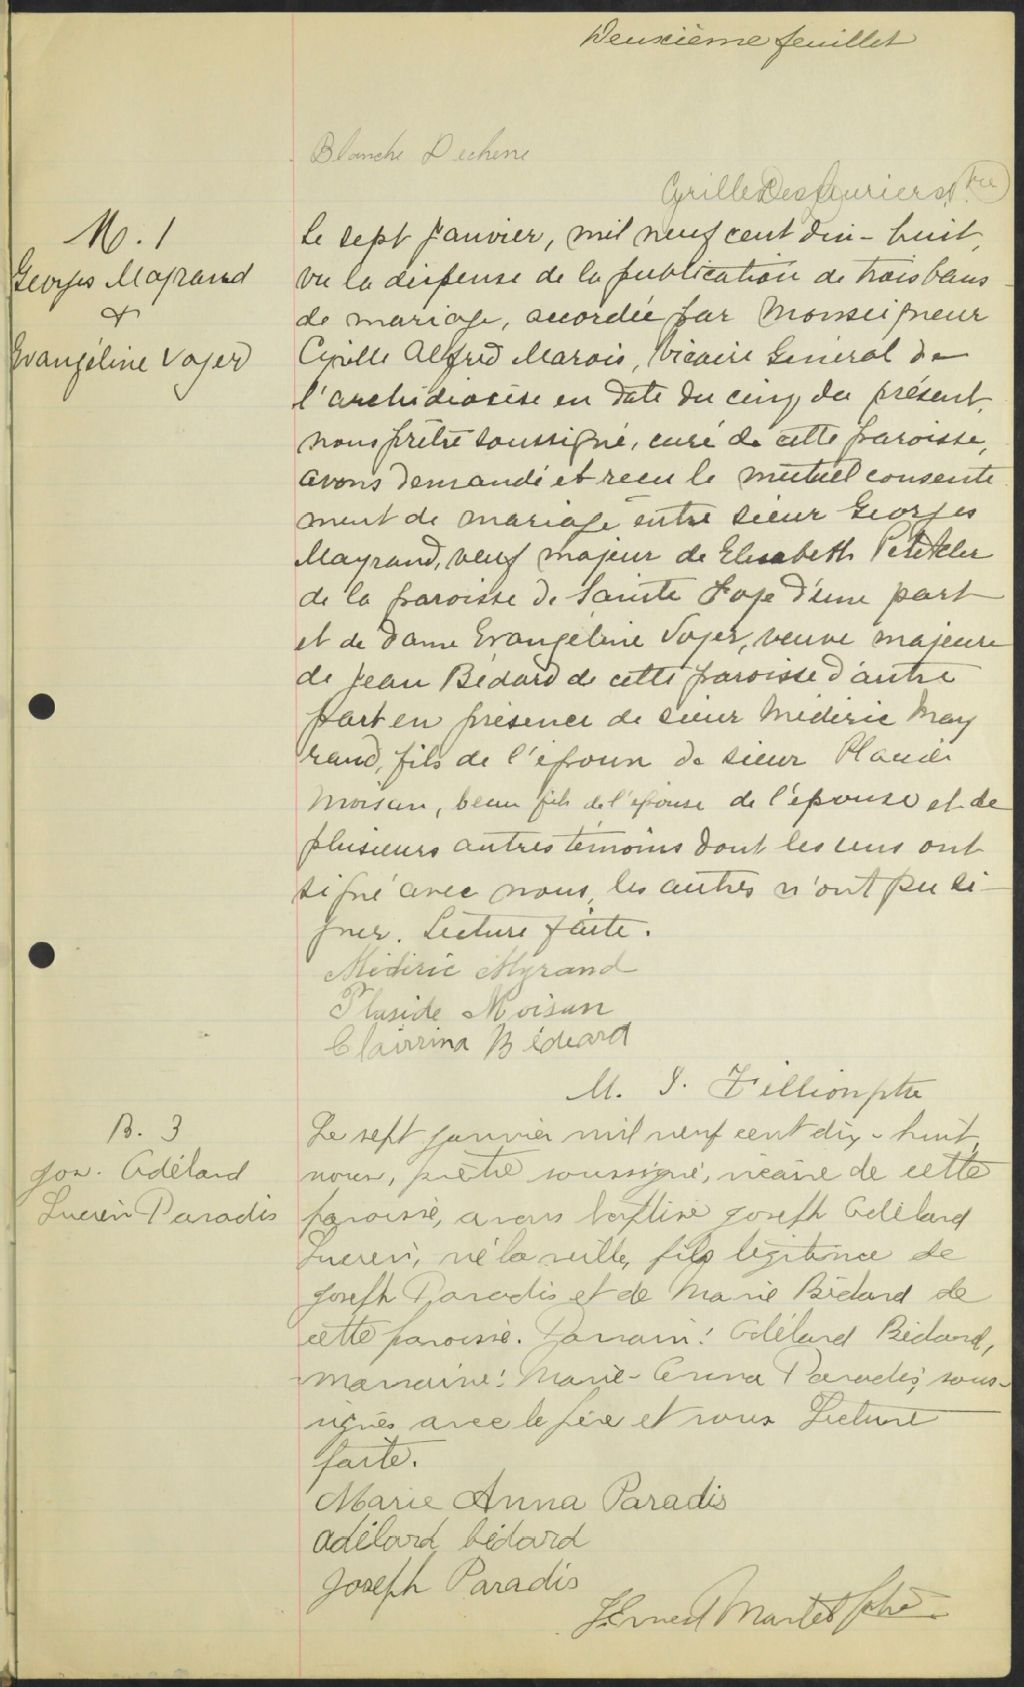 Deuxième feuillet
Blanche Dechene
Cyrille Deslauriers, ptre
M. 1
Georges Mayrand
&
Evangéline Voyer
Le sept janvier, mil neuf cent dix-huit,
vu la dispense de la publication de trois bans
de mariage, accordée par Monseigneur
Cyrille Alfred Marois, Vicaire Général de
l'archidiocèse en date du cinq du présent,
nous prêtre soussigné, curé de cette paroisse,
avons demandé et reçu le mutuel consente
ment de mariage entre sieur Georges
Mayrand, veuf majeur de Elisabeth Petitcler
de la paroisse de Sainte Foye d'une part
et de Dame Evangéline Voyer, veuve majeure
de Jean Bédard de cette paroisse d'autre
part en présence de sieur Médéric May
rand, fils de l'époux de sieur Placide
Moisan, beau fils de l'épouse de l'épouse et de
plusieurs autres témoins dont les uns ont
signé avec nous, les autres n'ont pu si-
gner. Lecture faite.
Médéric Myrand
Plaside Moisan
Clairrina Bédeard
M. S. Fillion ptre
B. 3
Jos. Adélard
Lucien Paradis
Le sept janvier mil neuf cent dix-huit,
nous, prêtre soussigné, vicaire de cette
paroisse, avons baptisé Joseph Adélard
Lucien, né la veille, fils légitime de
Joseph Paradis et de Marie Bédard de
cette paroisse. Parrain: Adélard Bédard,
marraine: Marie-Anna Paradis, sous-
signés avec le père et nous Lecture
faite.
Marie Anna Paradis
Adélard bédard
Joseph Paradis
J. Ernest Martel ptre